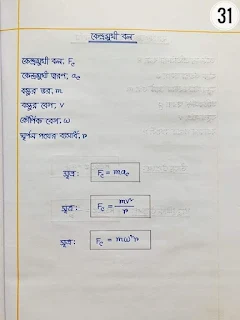 31
কেন্দ্রমুখী বল
কেন্দ্রমুখী বল, Fc
কেন্দ্রমুখী ত্বরণ, ac
বস্তুর ভর, m
বস্তুর বেগ, v
কৌণিক বেগ, ω
ঘূর্ণন পথের ব্যাসার্ধ, r
সূত্র : Fc = mac
সূত্র : Fc = mv²/r
সূত্র : Fc = mω²r